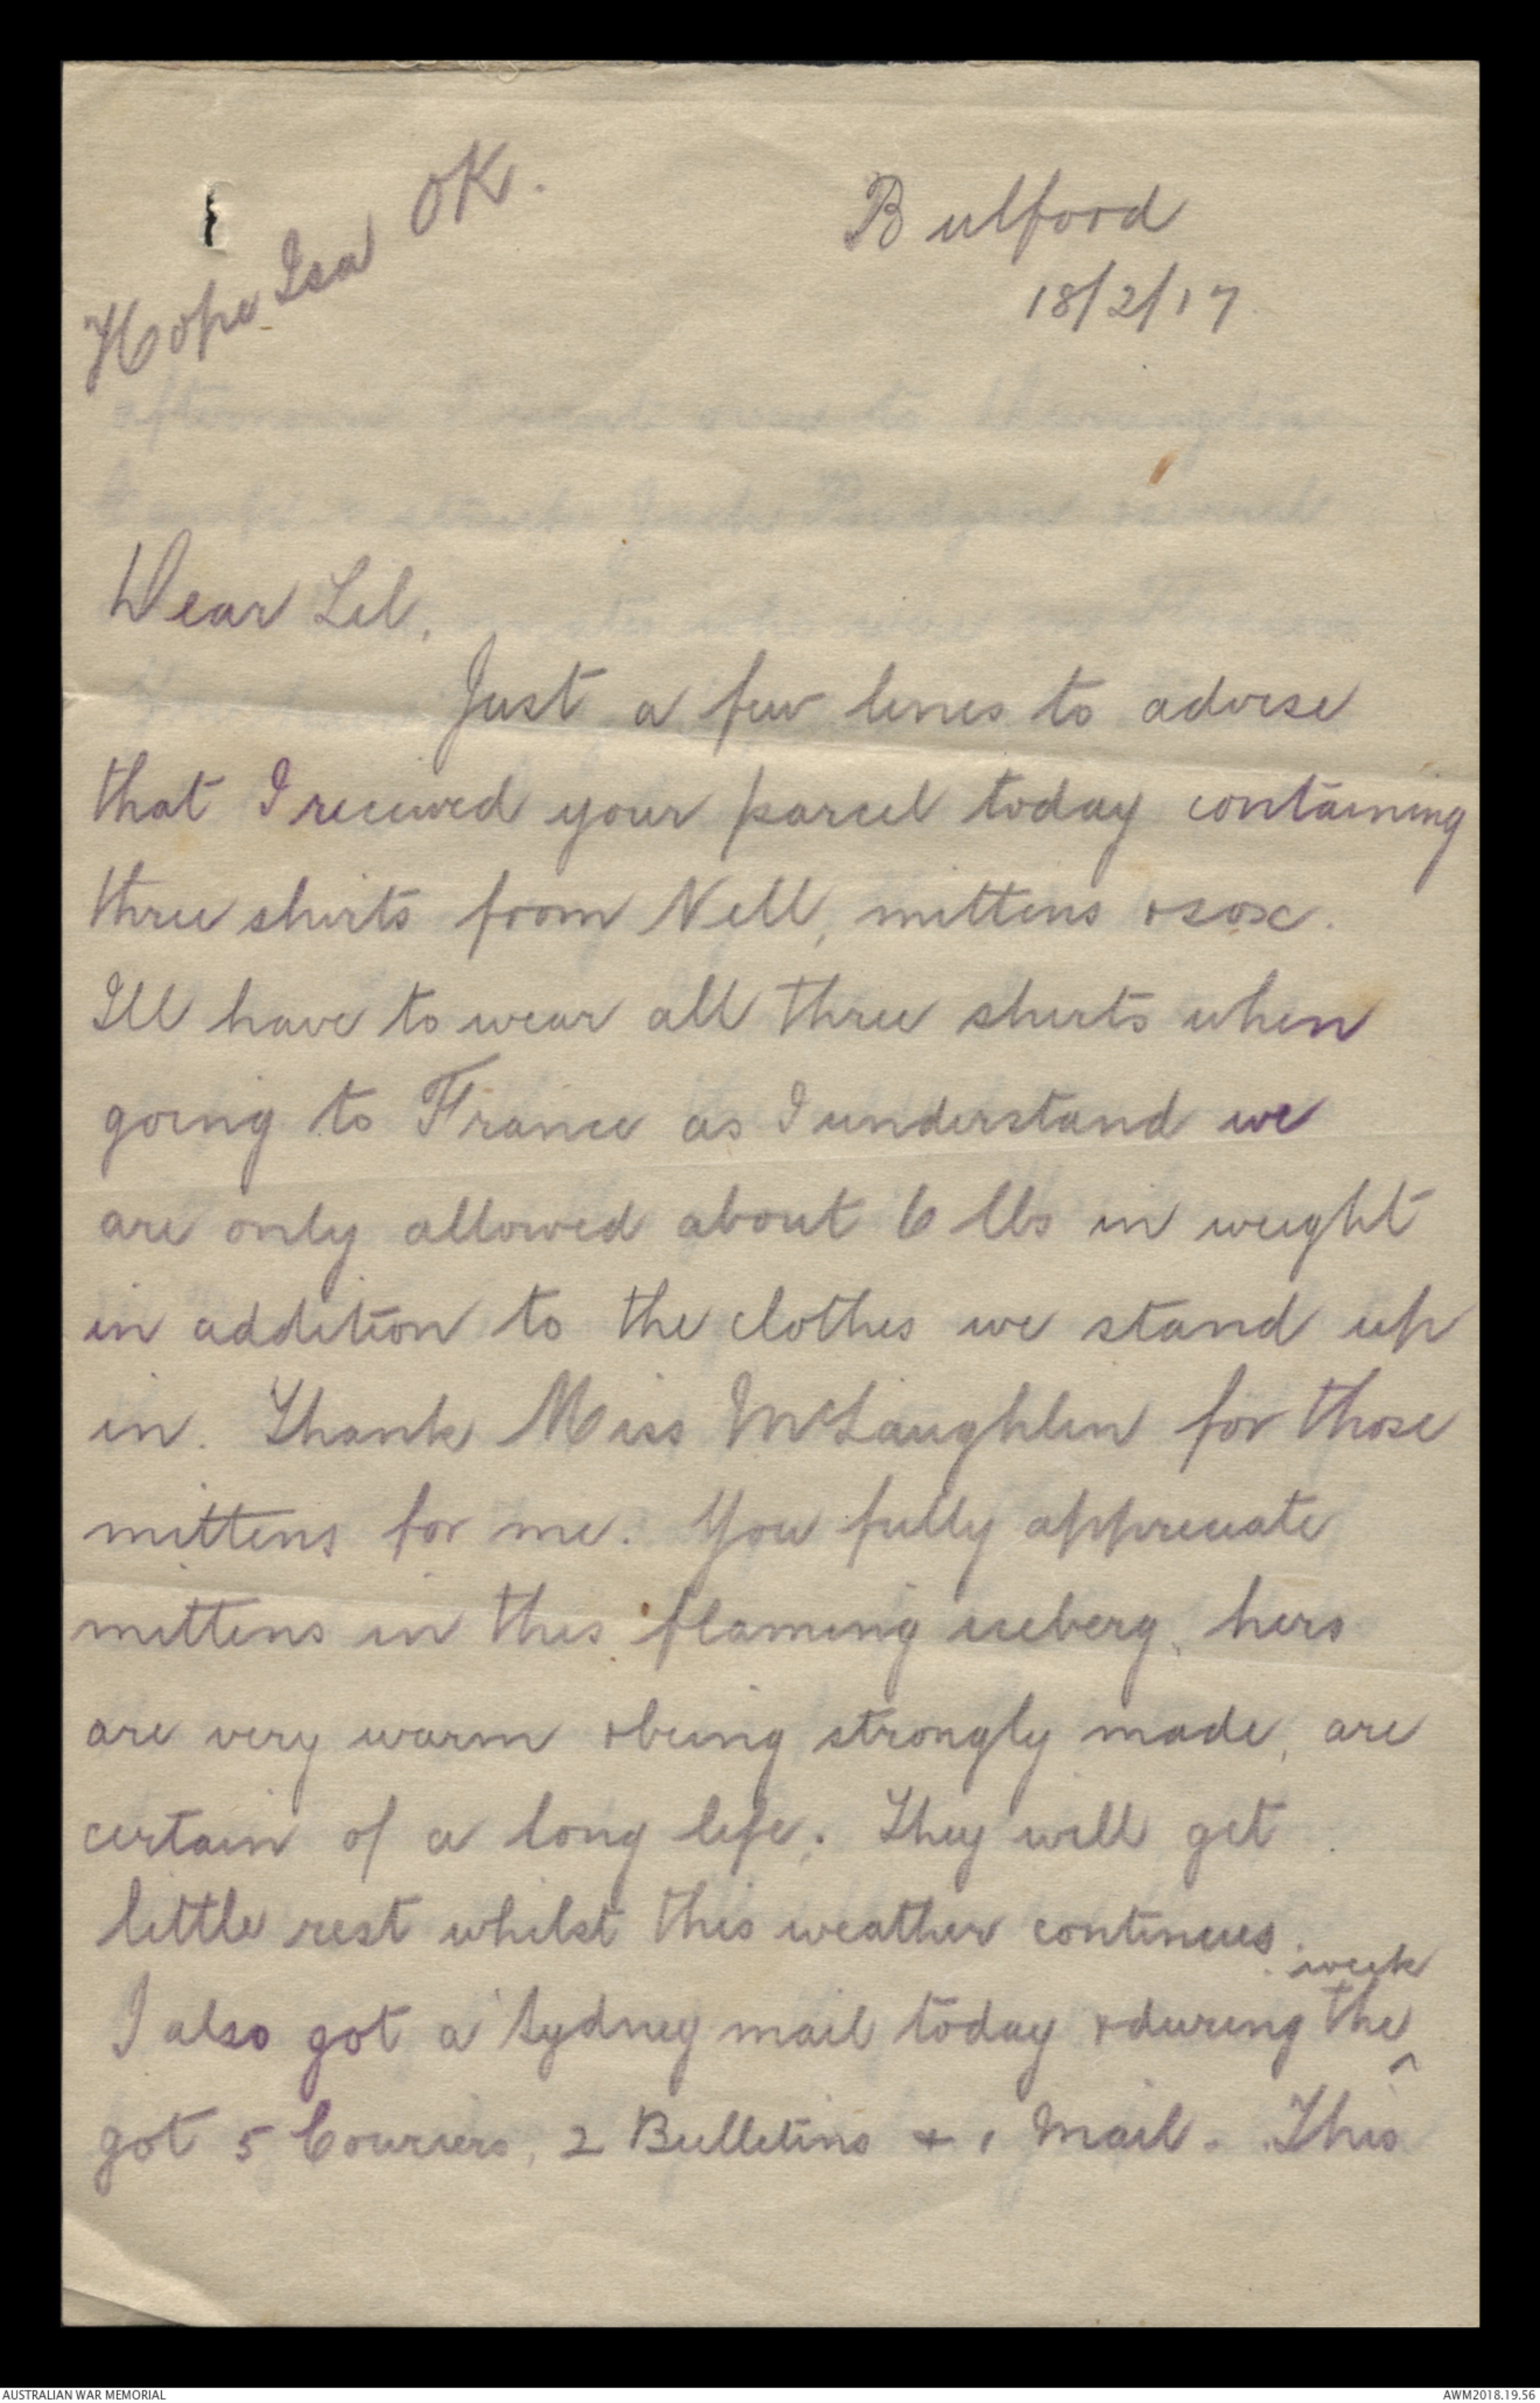 Hope Isa OK.
Bulford
18/2/17
Dear Lil,
Just a few lines to advise
that I received your parcel today containing
three shirts from Nell, mittens & sox.
Ill have to wear all three shirts when
going to France as I understand we
are only allowed about 6 lbs in weight
in addition to the clothes we stand up
in. Thank Miss McLaughlin for those
mittens for me. You fully appreciate
mittens in this flaming iceberg, hers
are very warm & being strongly made, are
certain of a long life. They will get
little rest whilst this weather continues.
I also got a Sydney mail today & during the week
got 5 Couriers, 2 Bulletins + 1 Mail. This
AUSTRALIAN WAR MEMORIAL
AWM2018.19.56